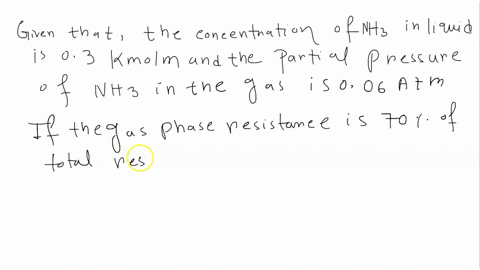 Given that, the concentration of NH3 in liquid
is 0.3 Kmolm and the Partial Pressure
of NH3 in the gas is 0.06 Atm
If the gas phase resistance is 70%. of
total res